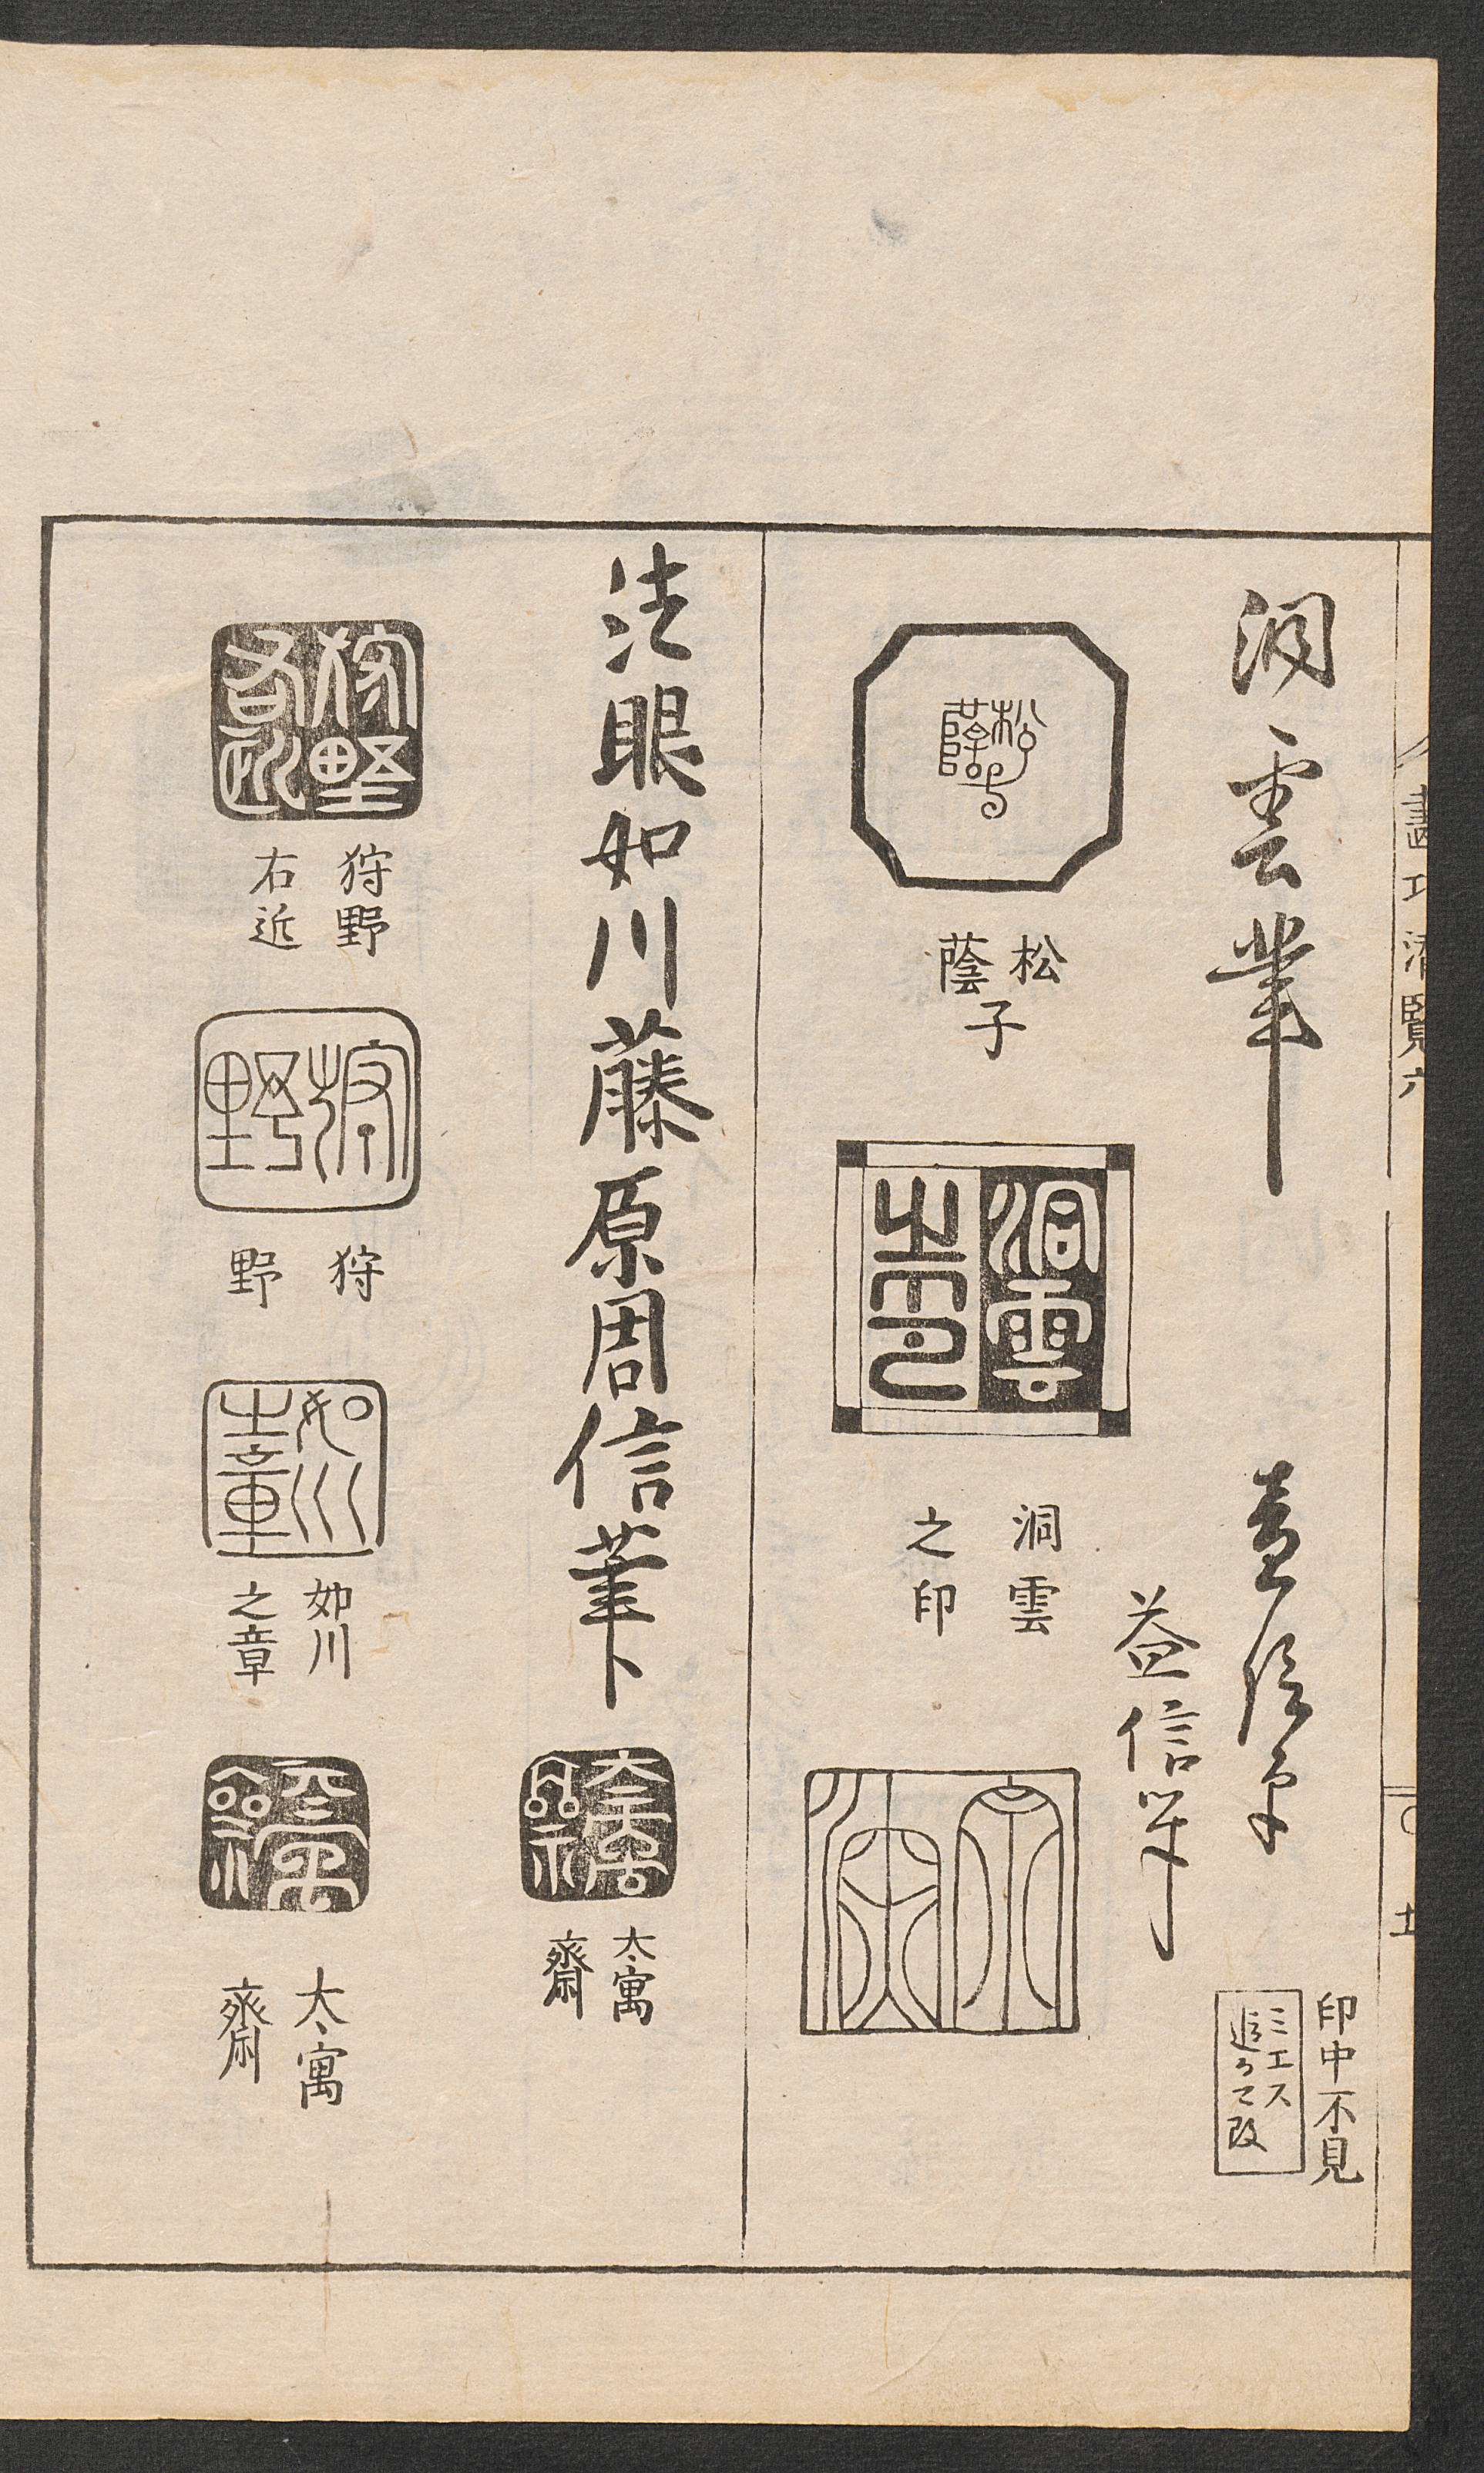 畫巧潛覽六
洞雲筆
益信筆
印中不見
ミエス
追而改
益信筆
松蔭子
松
蔭
子
洞雲
之印
洞雲
之印
法眼如川藤原周信筆
大寓
齋
狩野
右近
狩野
右近
狩
野
狩
野
如川
之章
如川
之章
大寓
齋